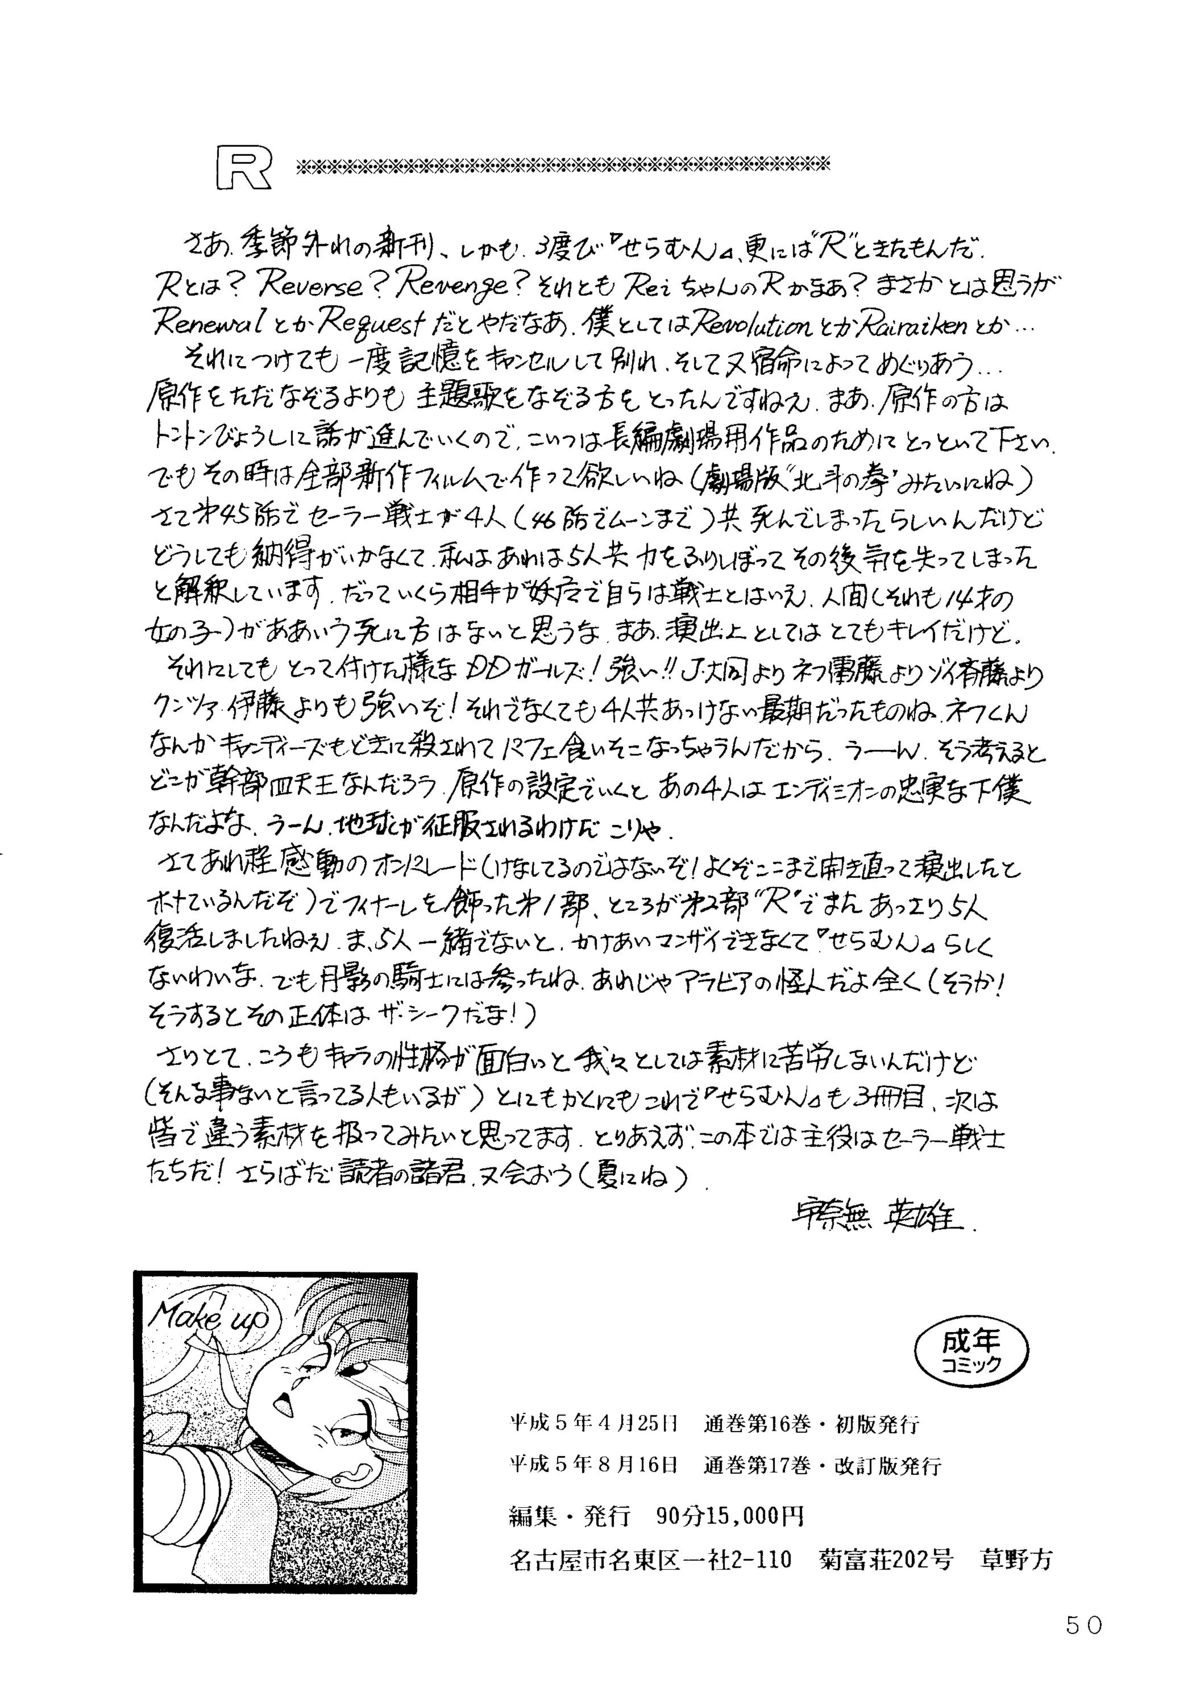 R
さあ、季節外れの新刊、しかも、3度び『せらむん』、更には"R"ときたもんだ.
Rとは? Reverse? Revenge? それとも Rei ちゃんのRかなぁ? まさかとは思うが
Renewal とか Request だとやだなあ、僕としては Revolution とか Rairaiken とか…
それにつけても 一度記憶をキャンセルして別れ、そして又宿命によってめぐりあう…
原作をただなぞるよりも 主題歌をなぞる方をとったんですねえ. まあ、原作の方は
トントンびょうしに話が進んでいくので、こいつは長編劇場用作品のためにとっといて下さい.
でもその時は全部新作フィルムで作って欲しいね(劇場版"北斗の拳"みたいにね)
さて才45話でセーラー戦士が4人(46話でムーンまで)共 死んでしまったらしいんだけど
どうしても納得がいかなくて、私はあれは5人共 力をふりしぼって その後気を失ってしまった
と解釈しています. だっていくら相手が妖魔で自らは戦士とはいえ、人間(それも14才の
女の子)がああいう死に方はないと思うな. まあ、演出上としてはとてもキレイだけど.
それにしても とって付けた様な DDガールズ! 強い!! J・大同より ネフ・雷藤より ゾイ・斉藤より
クンツァ・伊藤よりも強いぞ! それでなくても4人共あっけない最期だったものね、ネフくん
なんか キャンディーズもどきに殺されて パフェ食いそこなっちゃうんだから. うーん. そう考えると
どこが幹部四天王なんだろう. 原作の設定でいくと あの4人は エンディミオンの忠実な下僕
なんだよな. うーん. 地球が征服されるわけだ こりゃ.
さてあれ程感動のオンパレード(けなしてるのではないぞ! よくぞここまで開き直って演出したと
ホメているんだぞ)でフィナーレを飾った才1部、ところが才2部"R"でまた あっさり5人
復活しましたねえ. ま、5人一緒でないと、かけあいマンザイできなくて『せらむん』らしく
ないわいな. でも月影の騎士には参ったね、あれじゃアラビアの怪人だよ全く(そうか!
そうするとその正体は ザ・シークだな!)
さりとて、こうもキャラの性格が面白いと 我々としては素材に苦労しないんだけど
(そんな事ないと言ってる人もいるが)とにもかくにもこれで『せらむん』も3冊目、次は
皆で違う素材を扱ってみたいと思ってます. とりあえず、この本では主役はセーラー戦士
たちだ! さらばだ 読者の諸君、又会おう(夏にね).
宇奈無 英雄.
Make up
成年
コミック
平成5年4月25日 通巻第16巻・初版発行
平成5年8月16日 通巻第17巻・改訂版発行
編集・発行 90分15,000円
名古屋市名東区一社2-110 菊富荘202号 草野方
50